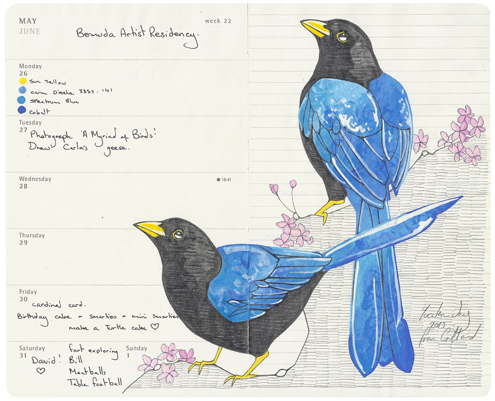 MAY
JUNE
week 22
Bermuda Artist Residency.
Monday
26
Sun Yellow
Spectrum Blue
Cobalt
Tuesday
27
Photograph 'A Myriad of Birds'!
Draw Carla's geese.
Wednesday
28
Thursday
29
Friday
30
cardinal card.
Birthday cake + smarties + mini smarties
make a Turtle cake ♡
Saturday
31
David!
♡
fort exploring
Bill
Meatballs
Table football
Sunday
1